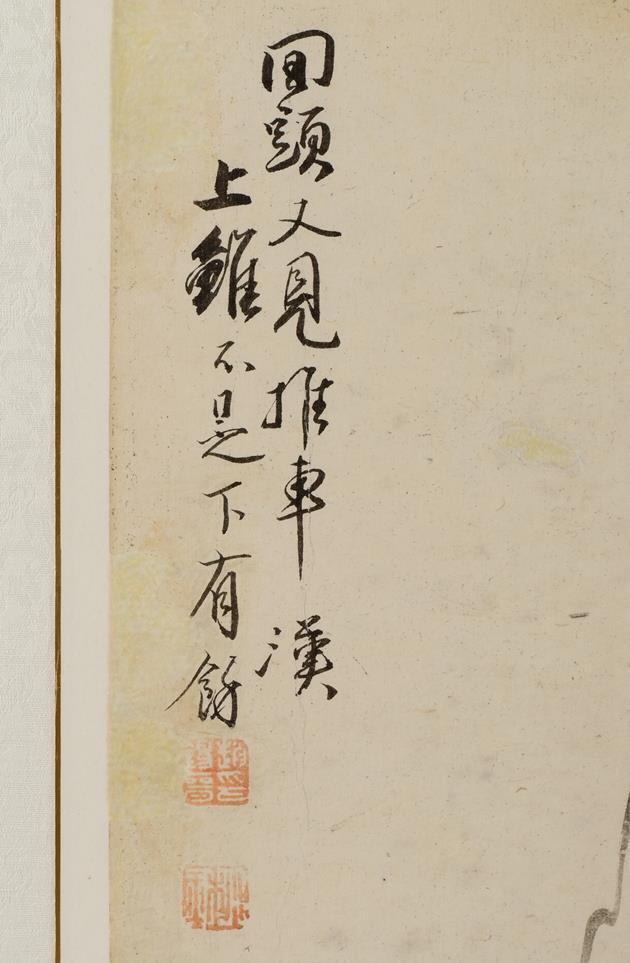 囬頭又見推車漢
上雖不足下有餘